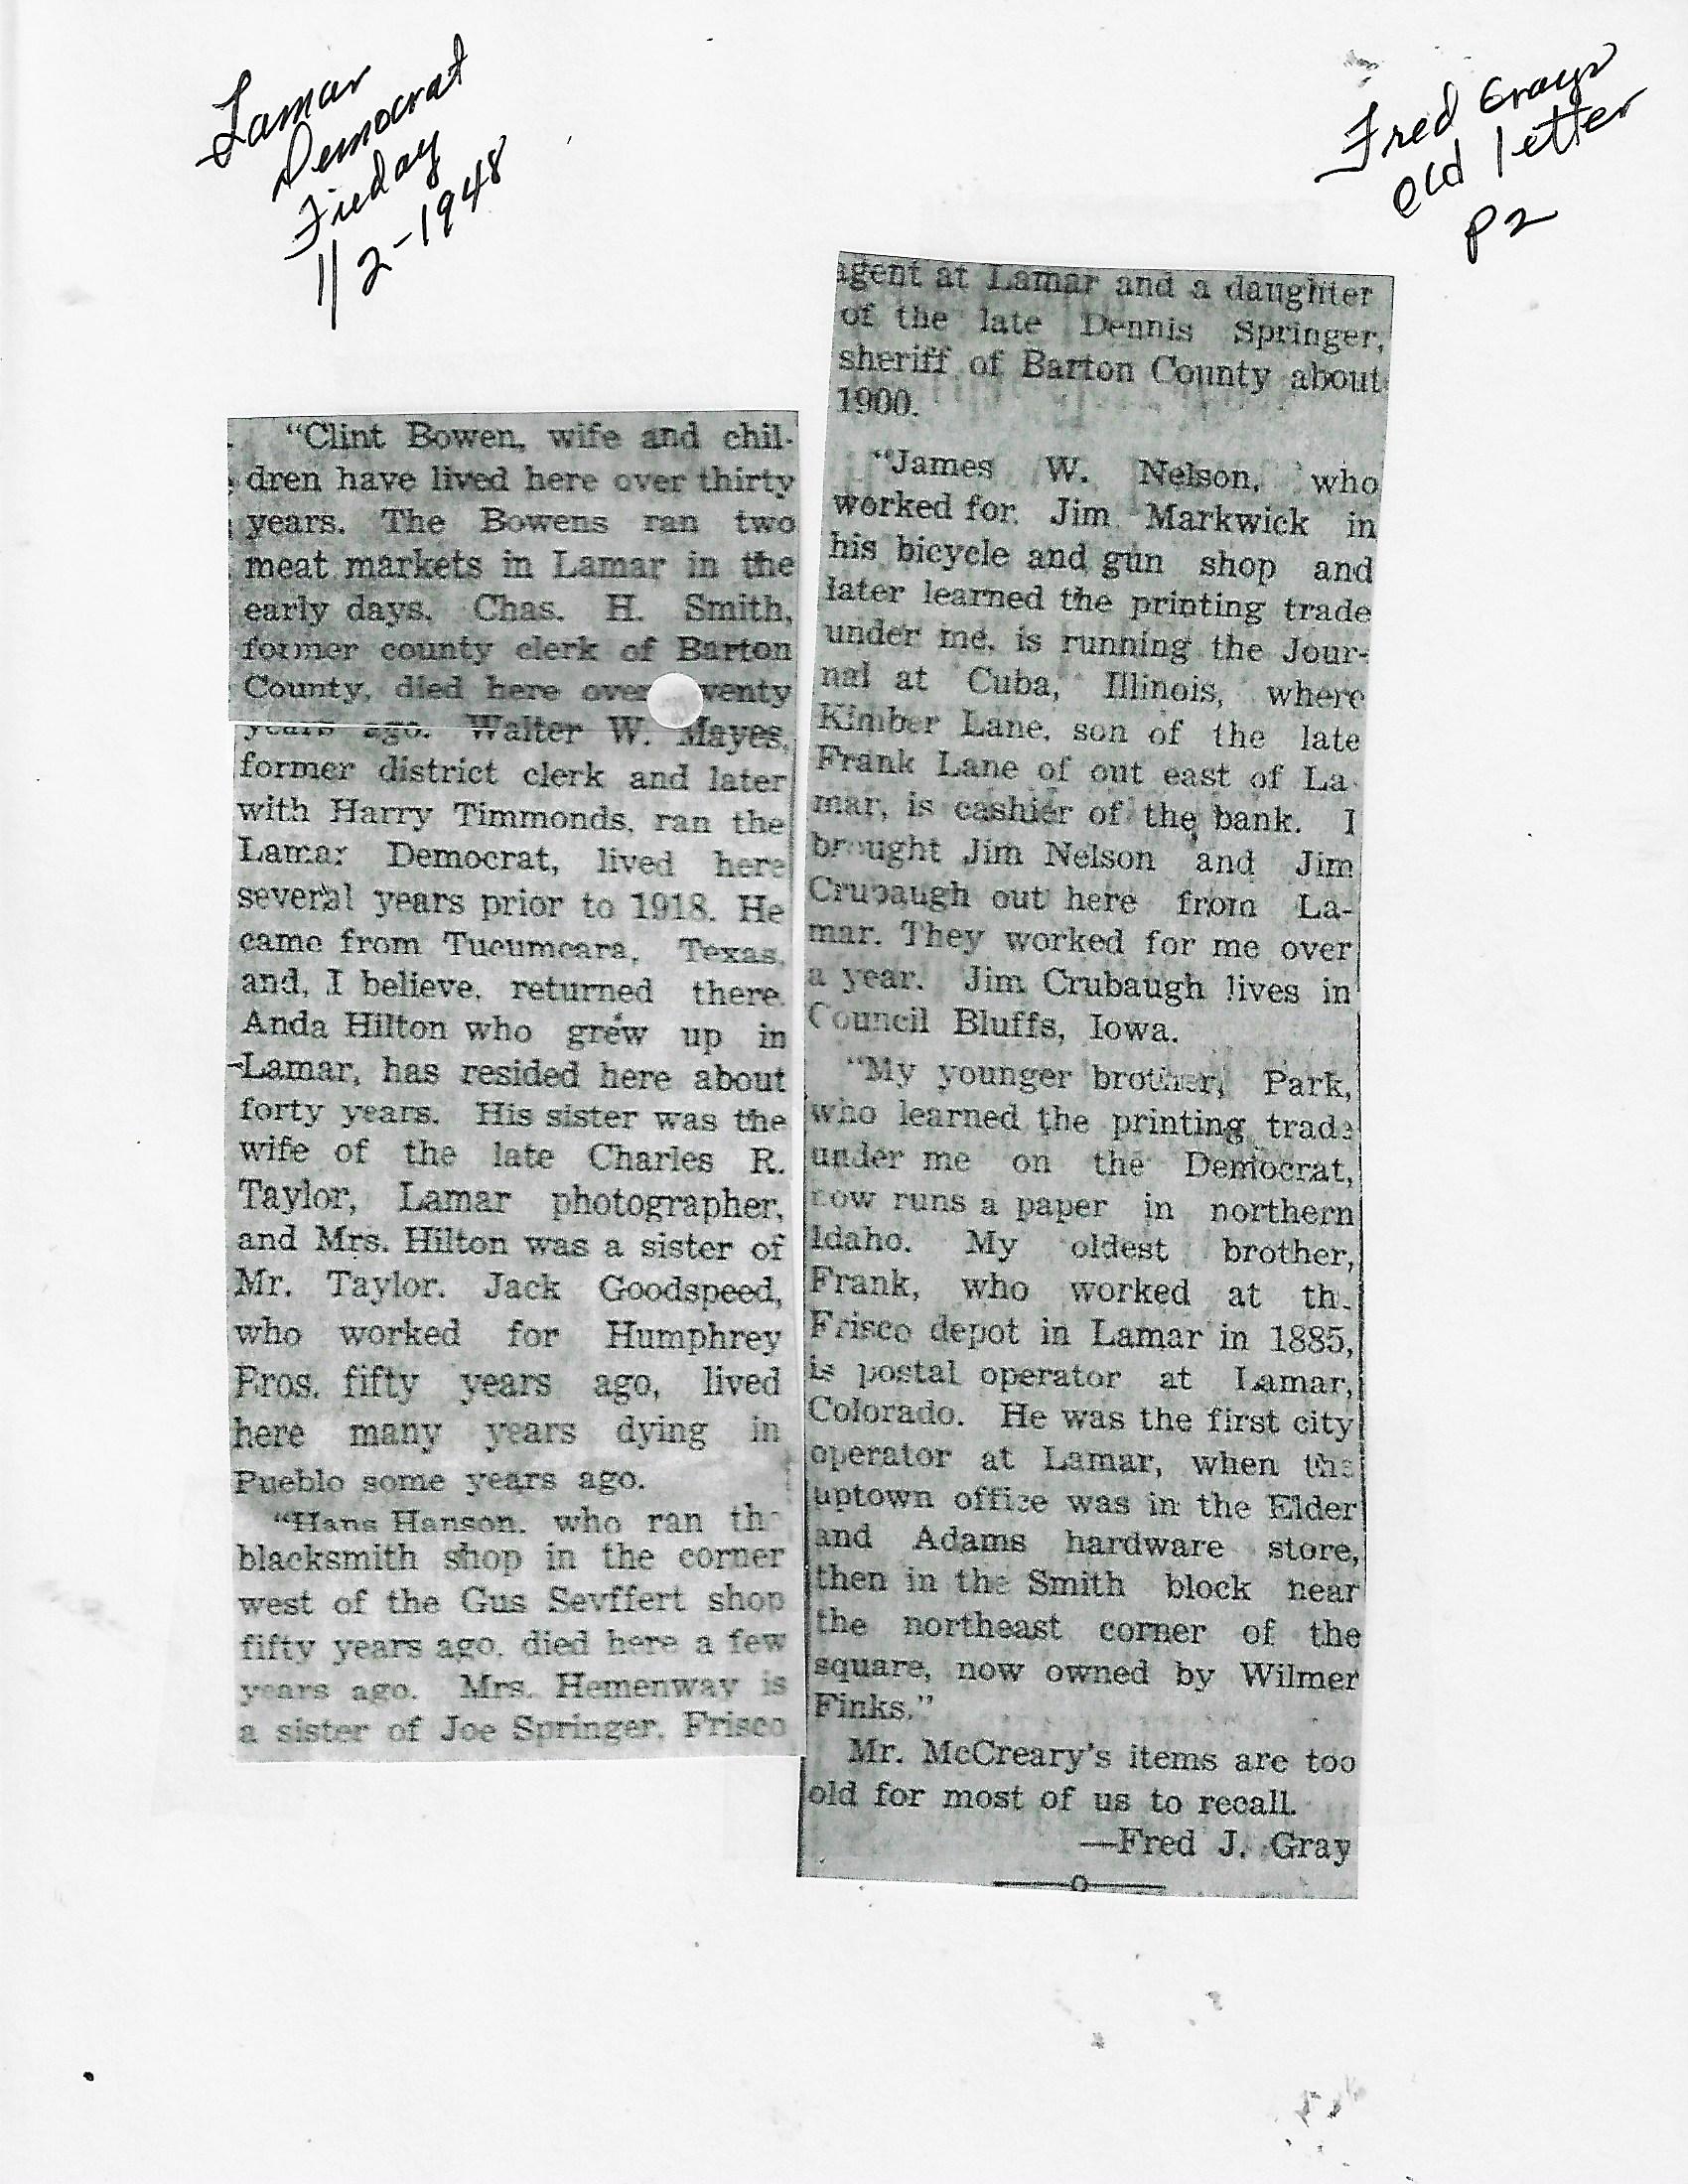 Lamar
Democrat
Frieday
1/2-1948
Fred Grays
old letter
P2
"Clint Bowen, wife and chil-
dren have lived here over thirty
years. The Bowens ran two
meat markets in Lamar in the
early days. Chas. H. Smith,
former county clerk of Barton
County, died here over wenty
years ago. Walter W. Mayes,
former district clerk and later
with Harry Timmonds, ran the
Lamar Democrat, lived here
several years prior to 1918. He
came from Tucumcara, Texas,
and, I believe, returned there.
Anda Hilton who grew up in
Lamar, has resided here about
forty years. His sister was the
wife of the late Charles R.
Taylor, Lamar photographer,
and Mrs. Hilton was a sister of
Mr. Taylor. Jack Goodspeed,
who worked for Humphrey
Bros. fifty years ago, lived
here many years dying in
Pueblo some years ago.
"Hans Hanson, who ran th
blacksmith shop in the corner
west of the Gus Seyffert shop
fifty years ago, died here a few
years ago. Mrs. Hemenway is
a sister of Joe Springer, Frisco
agent at Lamar and a daughter
of the late Dennis Springer,
sheriff of Barton County about
1900.
"James W. Nelson, who
worked for Jim Markwick in
his bicycle and gun shop and
later learned the printing trade
under me, is running the Jour-
nal at Cuba, Illinois, where
Kimber Lane, son of the late
Frank Lane of out east of La-
mar, is cashier of the bank. I
brought Jim Nelson and Jim
Crubaugh out here from La-
mar. They worked for me over
a year. Jim Crubaugh lives in
Council Bluffs, Iowa.
"My younger brother, Park,
who learned the printing trade
under me on the Democrat,
now runs a paper in northern
Idaho. My oldest brother,
Frank, who worked at th
Frisco depot in Lamar in 1885,
is postal operator at Lamar,
Colorado. He was the first city
operator at Lamar, when the
uptown office was in the Elder
and Adams hardware store,
then in the Smith block near
the northeast corner of the
square, now owned by Wilmer
Finks."
Mr. McCreary's items are too
old for most of us to recall.
—Fred J. Gray